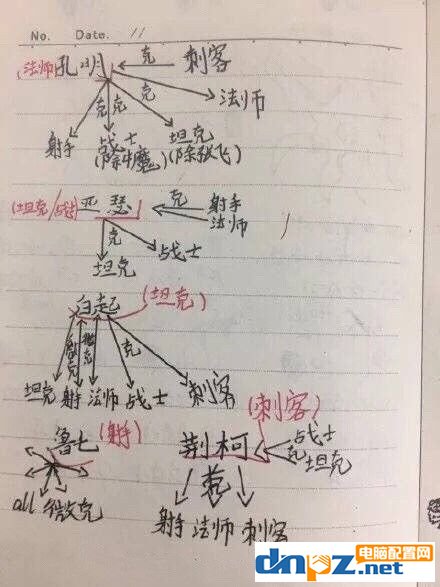 No. Date. 11
(法师)孔明 克 刺客
克 克 克 法师
射手 战士 坦克
(除牛魔) (除张飞)
(坦克/战士) 亚瑟 克 射手
法师
克 战士
坦克
白起 (坦克)
微克 微克 克
坦克 射手 法师 战士 刺客
鲁七 (射手) (刺客)
荆柯 克 战士
坦克
all 微克 克
射手 法师 刺客
电脑配置网
dnpz.net